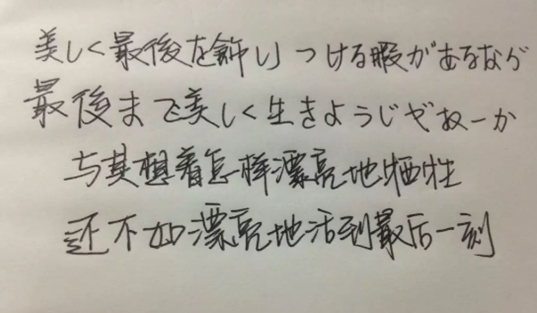 美しく最後を飾りつける暇があるなら
最後まで美しく生きようじゃねーか
与其想着怎样漂亮地牺牲
还不如漂亮地活到最后一刻